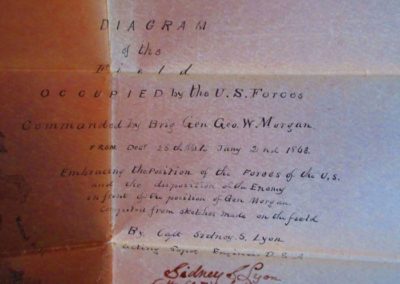 DIAGRAM
of the
Field
OCCUPIED by the U.S. Forces
Commanded by Brig Gen Geo. W. Morgan.
FROM Decr 28th until Jany 2nd 1863.
Embracing the Position of the Forces of the U.S.
and the disposition of the Enemy
in front of the position of Gen Morgan
Compiled from sketches made on the field
By Capt Sidney S. Lyon
Acting Topog Engineer U.S.A
Sidney S Lyon